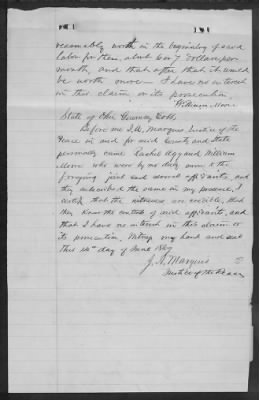 reasonably worth in the beginning of said
labor for them, about 7 dollars per
month, and that after that it would
be worth more — I have no interest
in this claim or its prosecution
William Moore
State of Ohio Guernsey Co ss,
Before me J. A. Marquis Justice of the
Peace in and for said County and State
personally came Rachel and William
Moore who were by me duly sworn the
foregoing joint and several affidavits, and
they subscribed the same in my presence, I
certify that the witnesses are credible, that
they know the contents of said affidavits, and
that I have no interest in this claim or
its prosecution, Witness my hand and seal
this 14th day of 1869
J. A. Marquis
Justice of the Peace